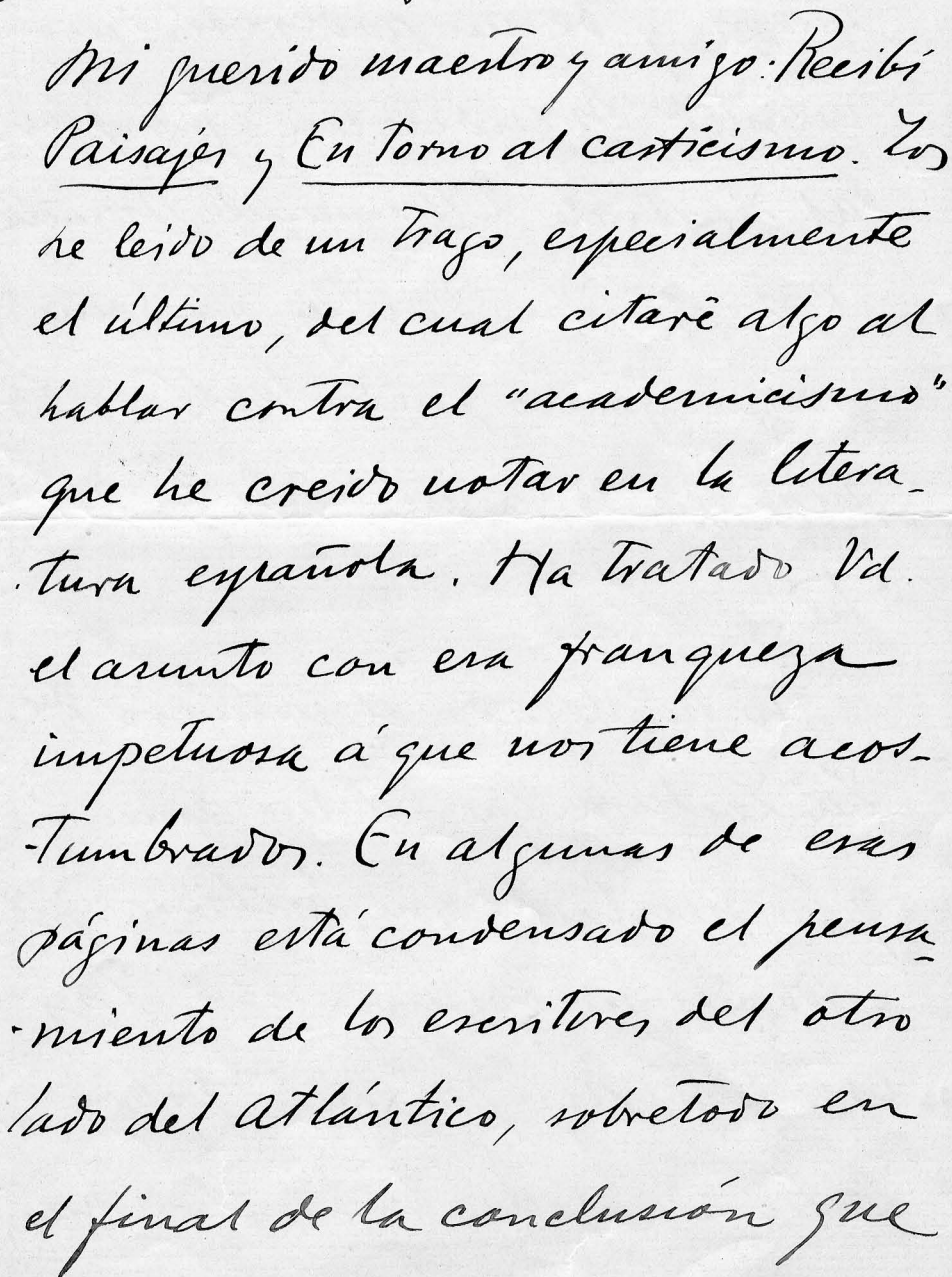 Mi querido maestro y amigo: Recibí
Paisajes y En torno al casticismo. Los
he leido de un trago, especialmente
el último, del cual citaré algo al
hablar contra el "academicismo"
que he creido notar en la litera-
tura española. Ha tratado Vd.
el asunto con esa franqueza
impetuosa á que nos tiene acos-
tumbrados. En algunas de esas
páginas está condensado el pensa-
miento de los escritores del otro
lado del Atlántico, sobretodo en
el final de la conclusión que